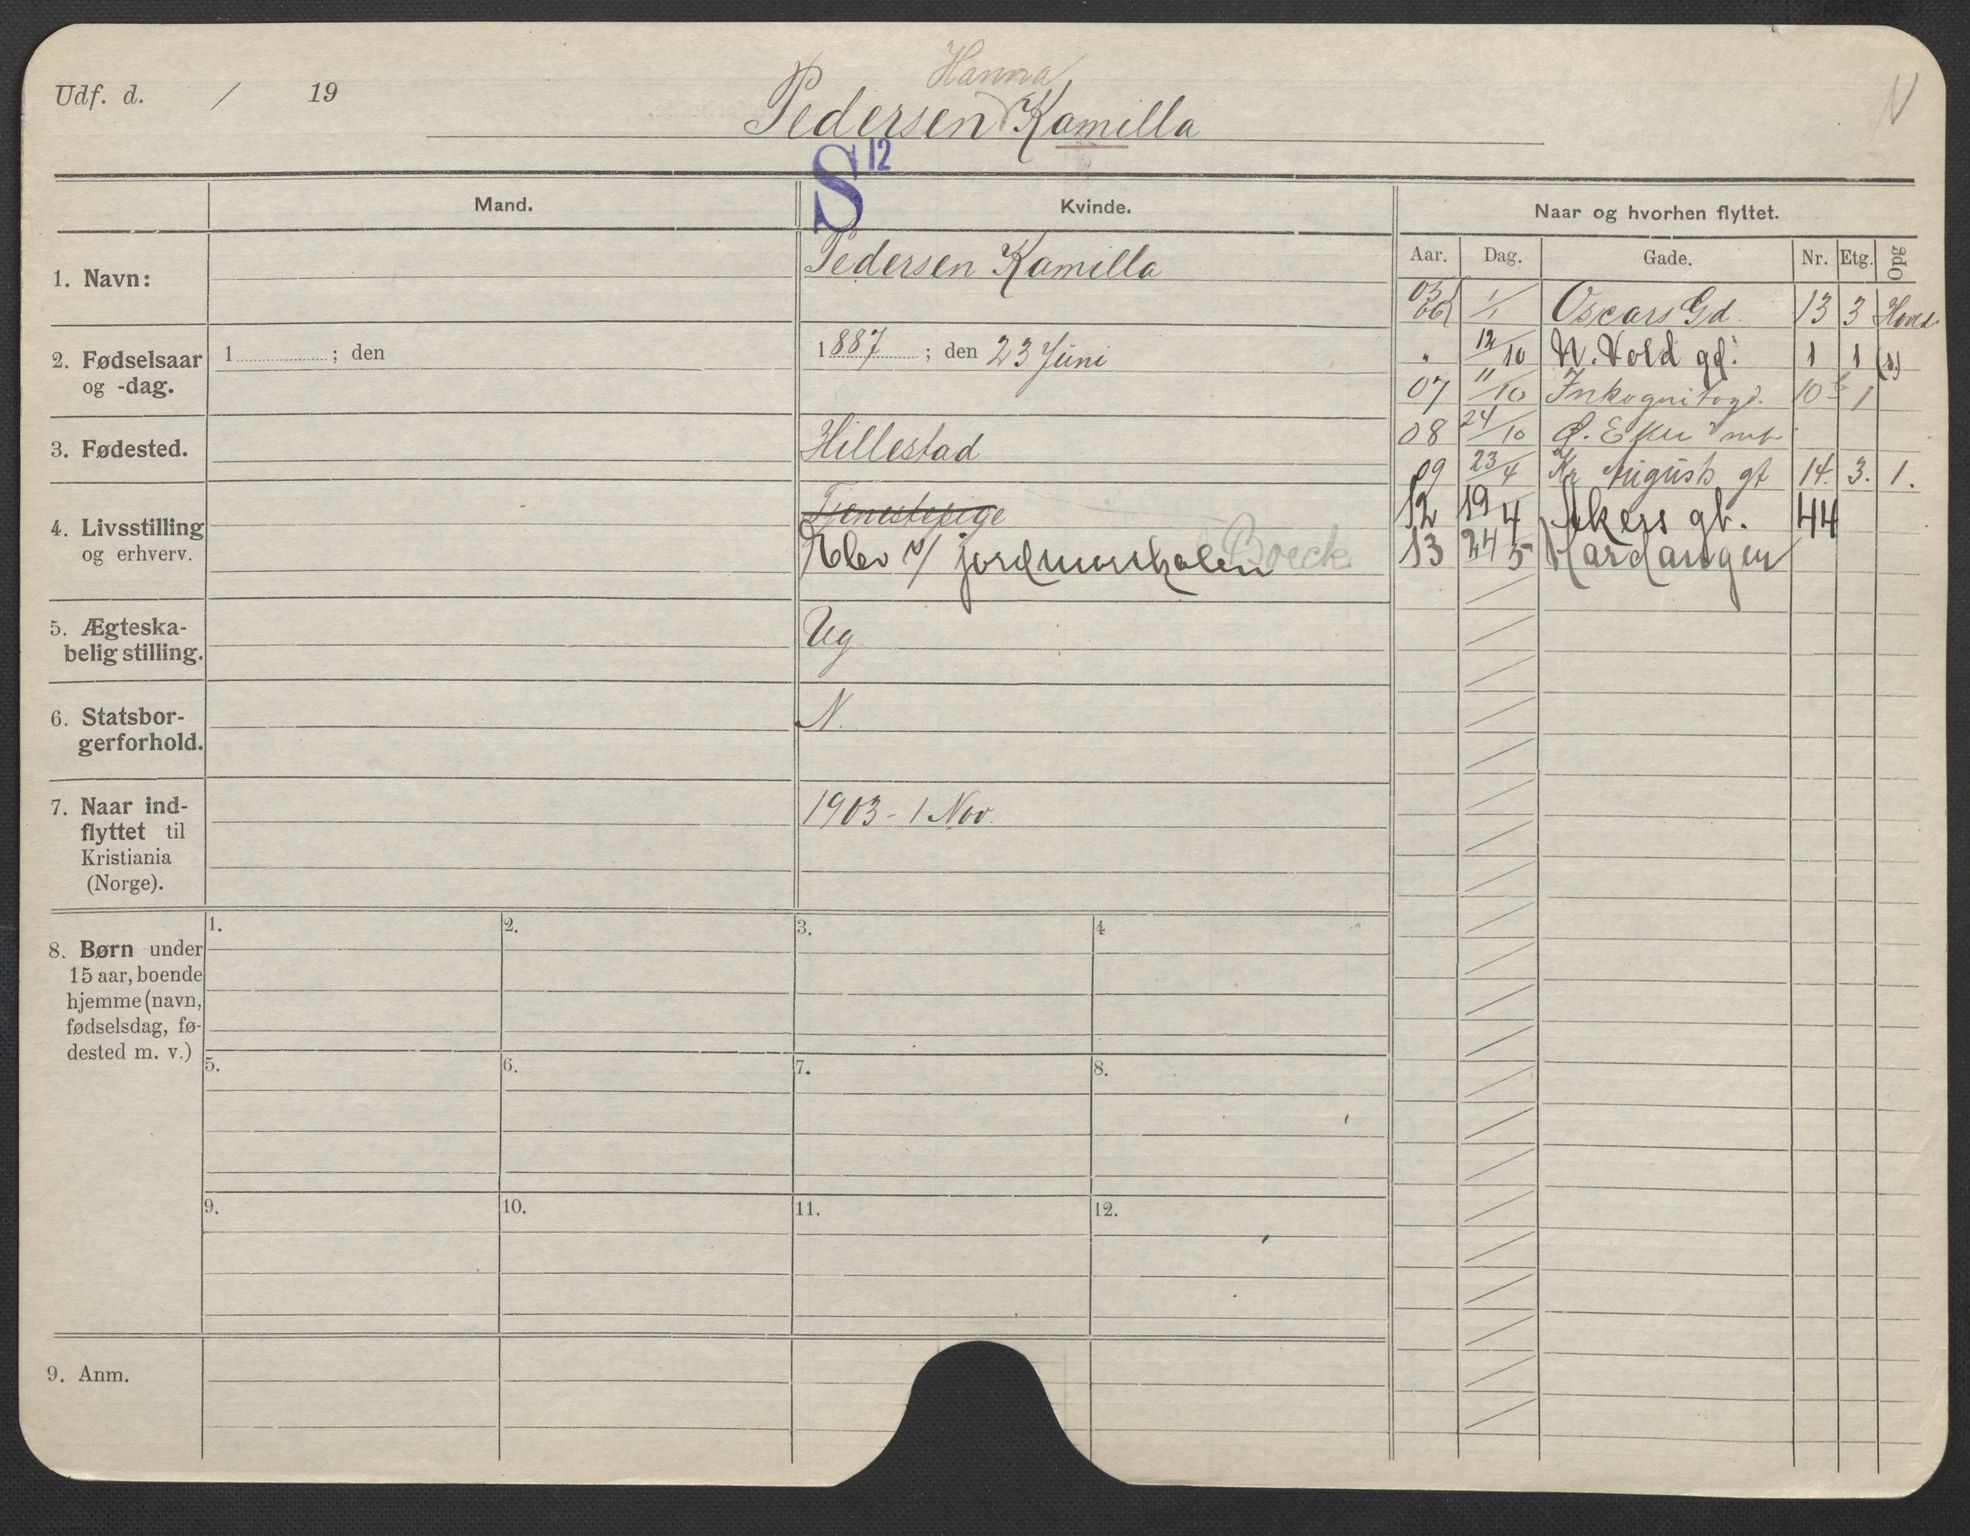 Udf. d. / 19
Hanna
Pedersen Kamilla
N
S 12
Mand.
Kvinde.
Naar og hvorhen flyttet.
Aar. Dag. Gade. Nr. Etg. Opg
1. Navn:
Pedersen Kamilla
2. Fødselsaar
og -dag.
1 ; den
1887 ; den 23 Juni
3. Fødested.
Hillestad
4. Livsstilling
og erhverv.
Tjenestepige
Elev v/ jordmorskolen Boeck
5. Ægteska-
belig stilling.
Ug
6. Statsbor-
gerforhold.
N.
7. Naar ind-
flyttet til
Kristiania
(Norge).
1903 - 1 Nov.
8. Børn under
15 aar, boende
hjemme (navn,
fødselsdag, fø-
dested m. v.)
1. 2. 3. 4
5. 6. 7. 8.
9. 10. 11. 12.
9. Anm.
05
06 1/1 Oscars Gd. 13 3 Hoved
" 12/10 N. Vold gd. 1 1 (1.)
07 11/10 Inkognitogd. 10 b 1
08 24/10 Ø. Eker
09 23/4 Kr Augusts gt 14. 3. 1.
12 19 4 Akers gt. 44
13 24 5 Hardanger